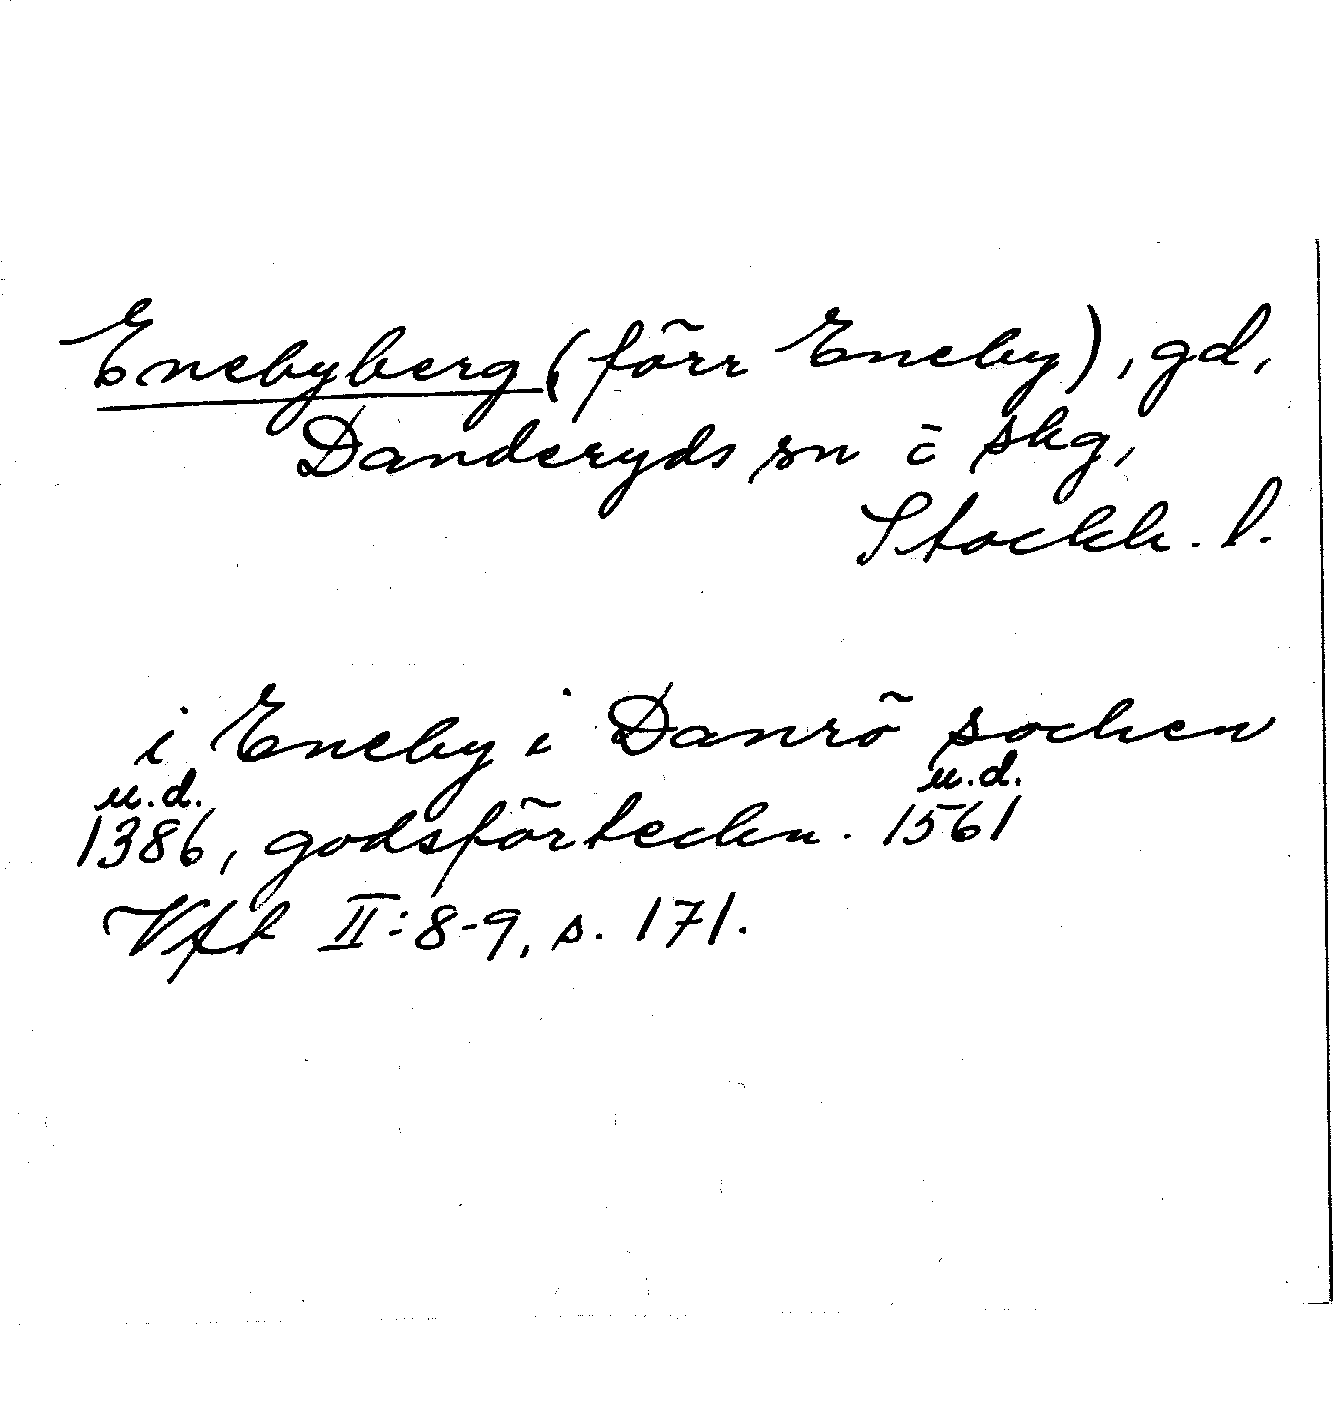 Enebyberg (förr Eneby), gd,
Danderyds sn o skg,
Stockh. l.
i Eneby i Danrö sochen
u.d. u.d.
1386, godsförteckn. 1561
Vft II:8-9, s. 171.